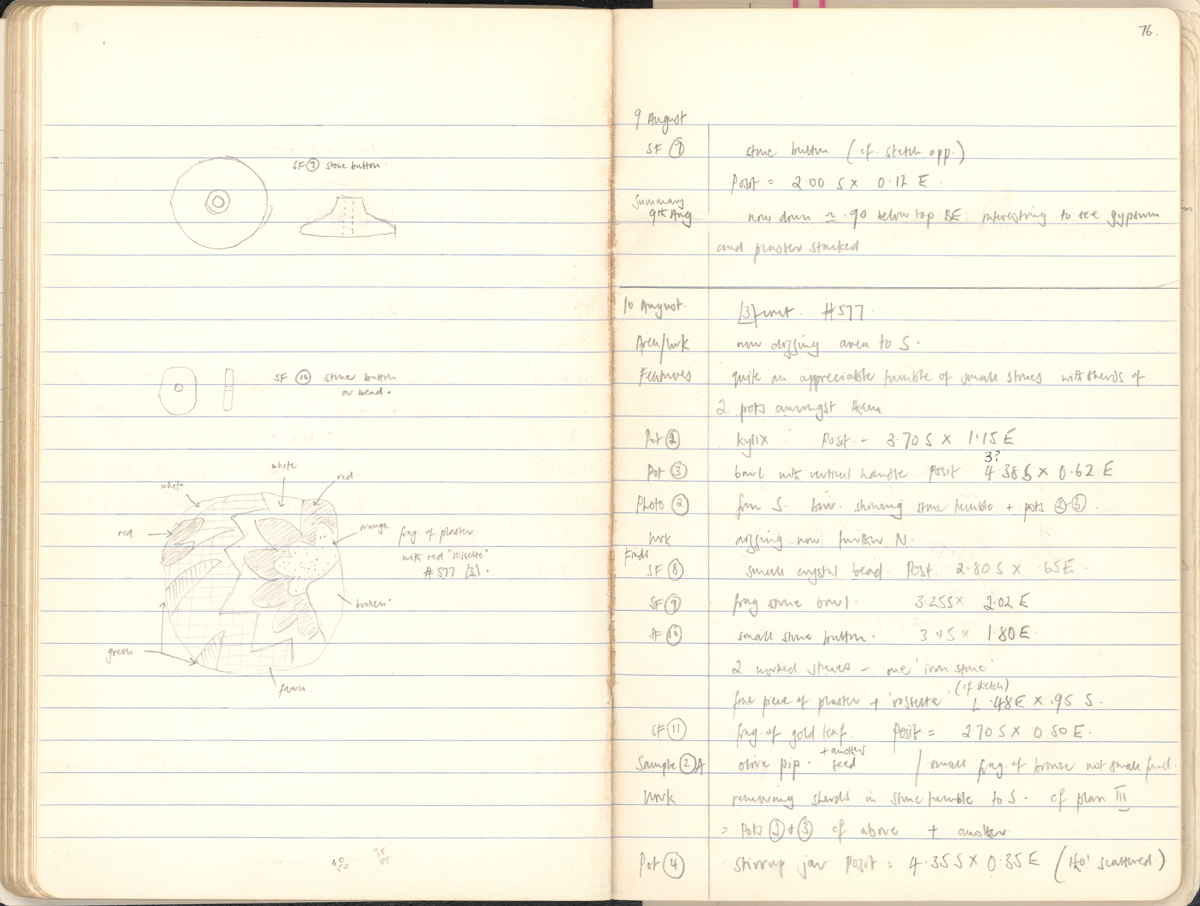 SF ⑦ stone button.
SF ⑩ stone button
or bead.
white
white
red
red
orange
frag. of plaster
with red "rosette"
# 577 [3].
broken
green
fawn.
76.
9 August
SF ⑦ stone button (cf. sketch opp.)
Posit = 2.00 S x 0.12 E.
Summary
9th Aug now down ≃ .90 below top BE. interesting to see gypsum
and plaster stacked
10 August. [3] cont. #577.
Area/wk now digging area to S.
Features quite an appreciable tumble of small stones with sherds of
2 pots amongst them
Pot ② kylix Posit - 3.70 S x 1.15 E
3?
Pot ③ bowl with vertical handle. Posit 4.38 S x 0.62 E
Photo ② from S. showing stone tumble + pots ② ③.
Wrk digging now further N.
Finds
SF ⑧ small crystal bead. Posit. 2.80 S x .65 E.
SF ⑨ frag stone bowl. 3.25 S x 2.02 E
SF ⑩ small stone button. 3.45 x 1.80 E.
2 worked stones - one 'iron stone'
(cf sketch)
fine piece of plaster + 'rosette'. 1.48 E x .95 S.
SF ⑪ frag. of gold leaf. Posit = 2.70 S x 0.50 E.
+ another
Sample ② A olive pip. seed / small frag. of bronze not small find.
Wrk removing sherds in stone tumble to S. cf plan III
= Pots ② & ③ cf above + another
Pot ④ stirrup jar posit = 4.35 S x 0.35 E ( scattered)